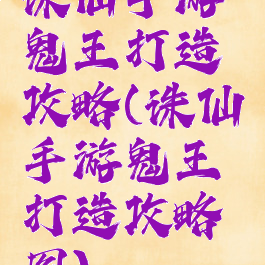 诛仙手游
鬼王打造
攻略(诛仙
手游鬼王
打造攻略
图)